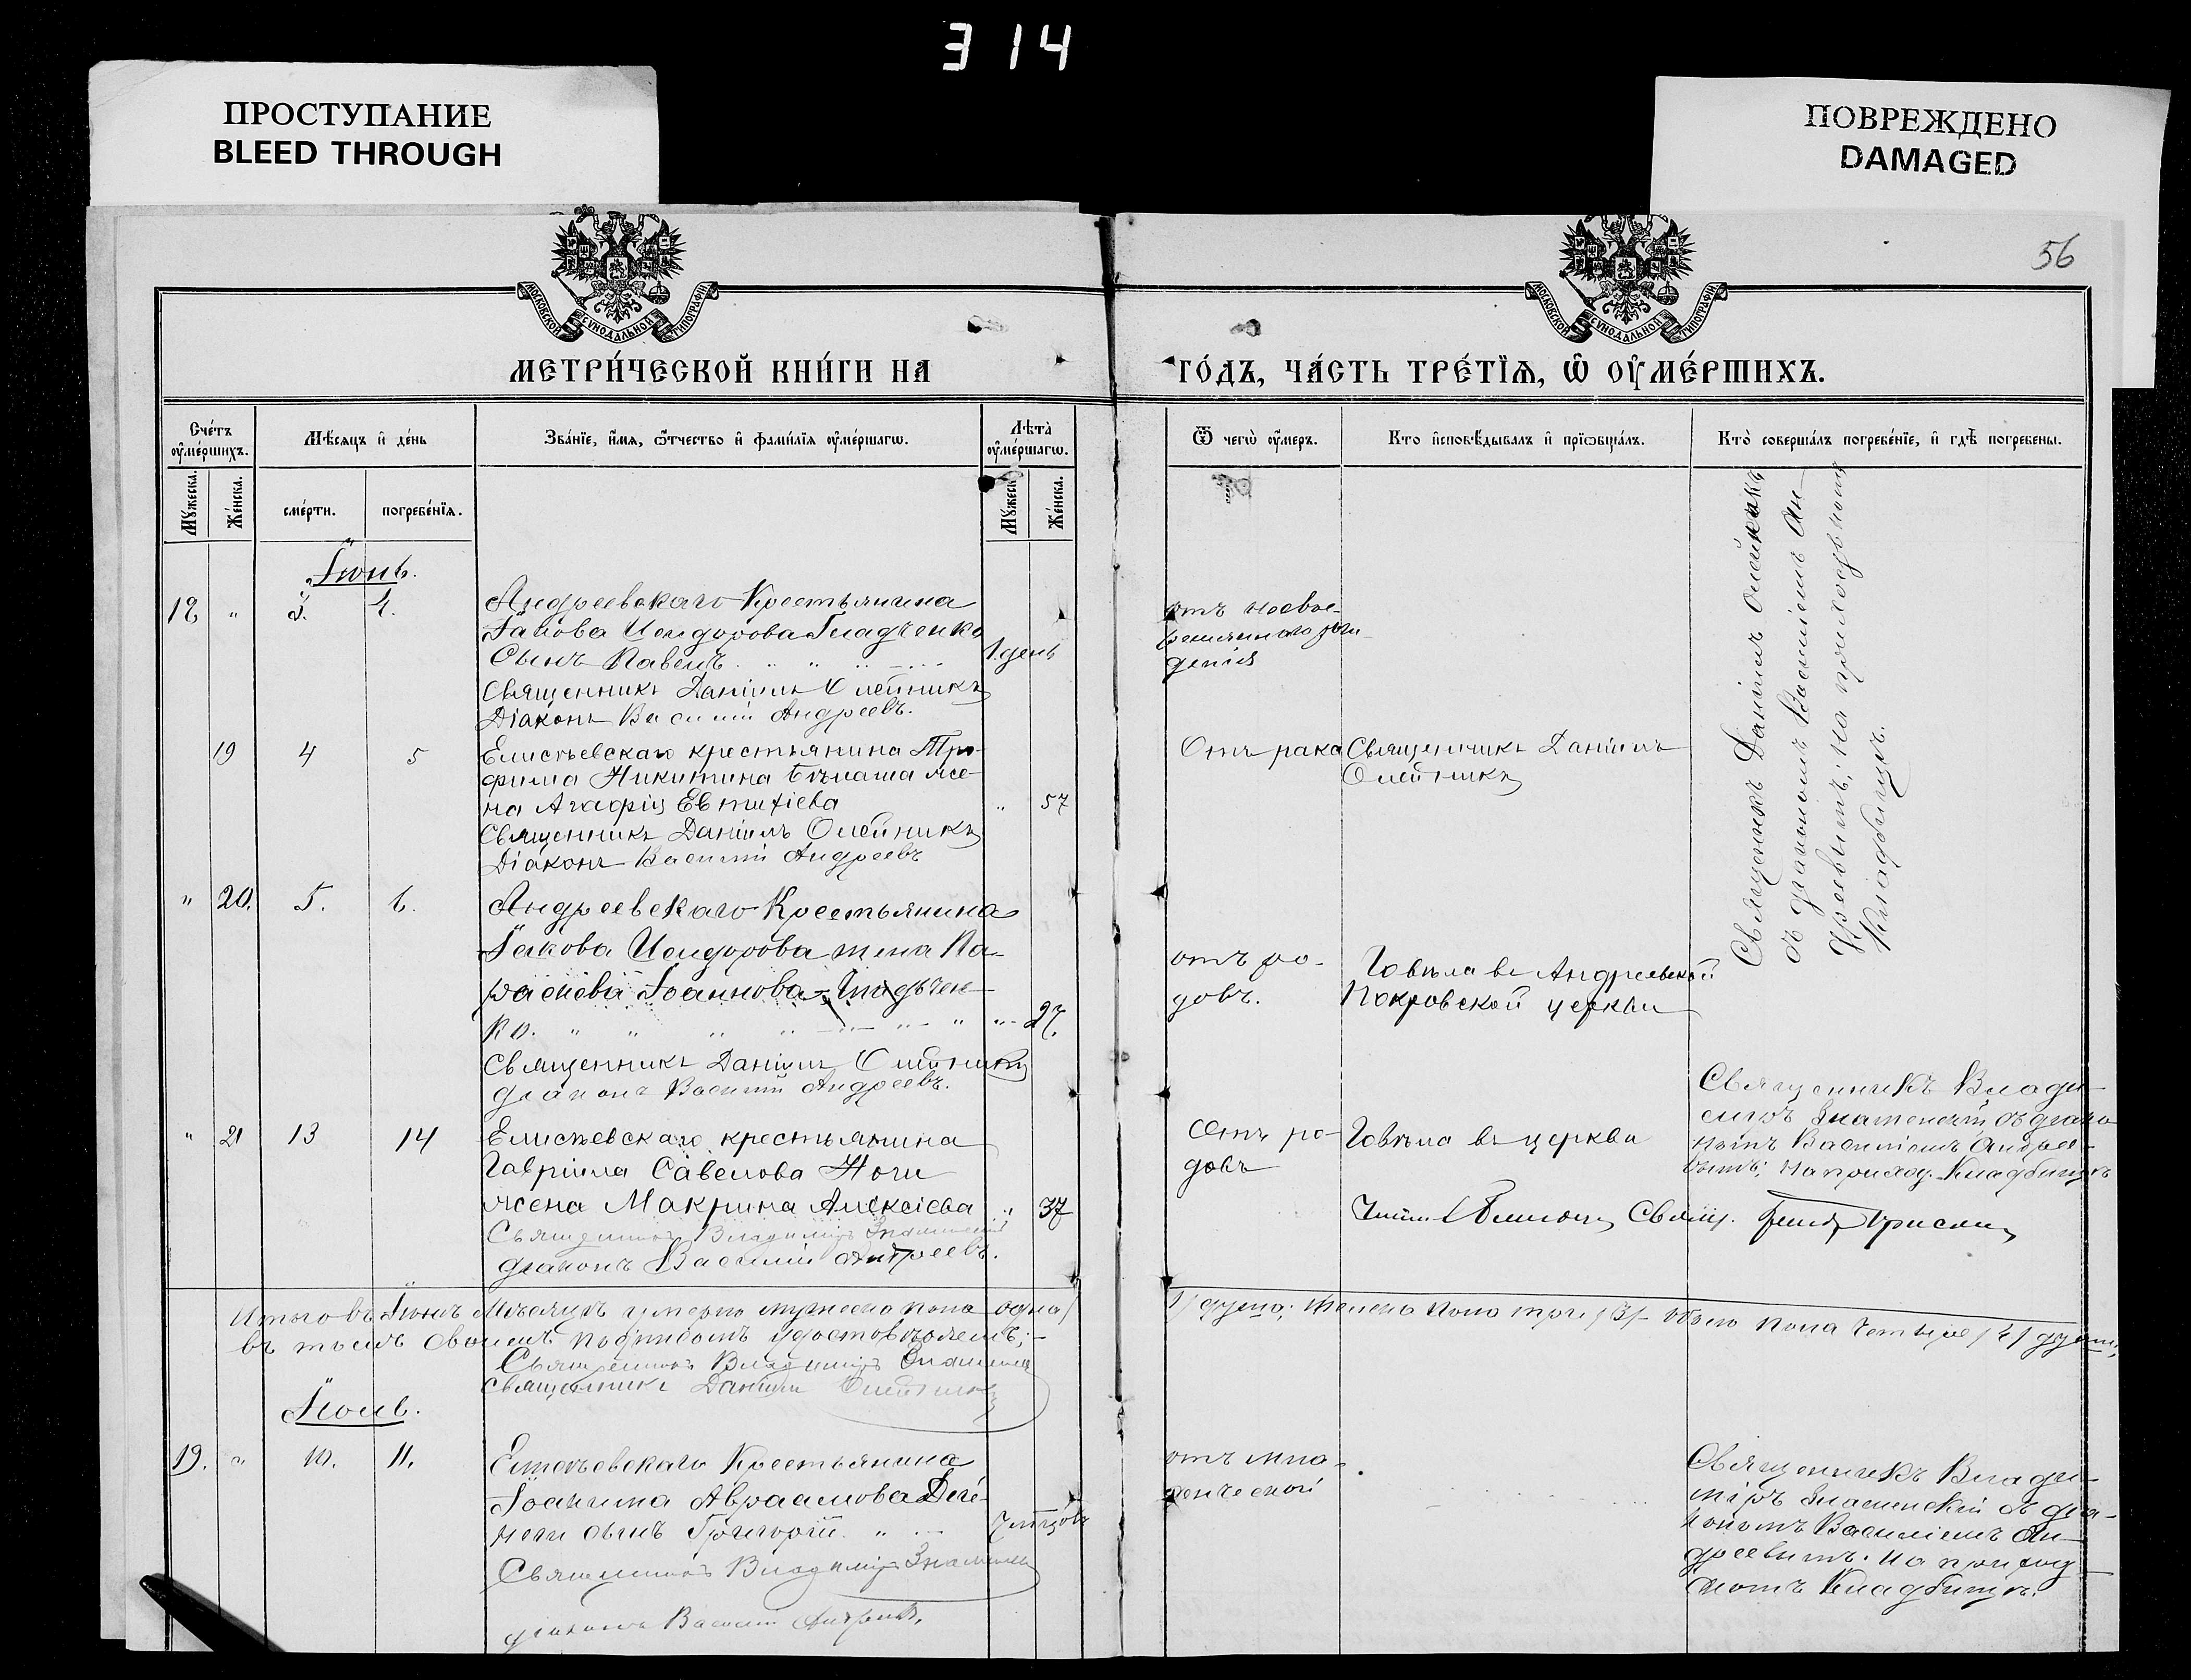 314
ПРОСТУПАНИЕ
BLEED THROUGH
ПОВРЕЖДЕНО
DAMAGED
56
МОСКОВСКОЙ СѴНОДАЛЬНОЙ ТИПОГРАФІИ
МОСКОВСКОЙ СѴНОДАЛЬНОЙ ТИПОГРАФІИ
МЕТРИ́ЧЕСКОЙ КНИ́ГИ НА ГО́ДЪ, ЧА́СТЬ ТРЕ́ТЇѦ, Ѽ ОУ҆МЕ́РШИХЪ.
Сче́тъ оу҆ме́ршихъ.
Мѣ́сѧцъ и҆ де́нь
Зва́нїе, и҆́мѧ, ѻ҆́тчество и҆ фами́лїѧ оу҆ме́ршагѡ.
Лѣ́та̀ оу҆ме́ршагѡ.
Ѿ чегѡ̀ оу҆́меръ.
Кто и҆сповѣ́дывалъ и҆ прїѡбща́лъ.
Кто̀ соверша́лъ погребе́нїе, и҆ гдѣ̀ погребены.
Мꙋ́жеска.
Же́нска.
сме́рти.
погребе́нїѧ.
Мꙋ́жеск
Же́нска.
Іюнь.
18 " 3. 4. Андреевскаго Крестьянина
Іакова Исидорова Гладченко
Сынъ Павелъ 1. день
Священникъ Даніилъ Олейникъ
Діаконъ Василій Андреевъ.
отъ несвое-
временнаго рож-
денія
Священникъ Даніилъ Олейникъ
съ діакономъ Василіемъ Ан-
дреевымъ; на приходскомъ
Кладбищѣ.
19 4 5 Елисѣевскаго крестьянина Тро-
фима Никитина Бѣлаша же-
на Агафія Евтихіева " 57
Священникъ Даніилъ Олейникъ
Діаконъ Василій Андреевъ
Отъ рака
Священникъ Даніилъ
Олейникъ
" 20. 5. 6. Андреевскаго Крестьянина
Іакова Исидорова жена Па-
раскева Іоаннова Гладчен-
ко. 27.
Священникъ Даніилъ Олейникъ
діаконъ Василій Андреевъ.
отъ ро-
довъ.
Говѣла въ Андреевской
Покровской церкви
" 21 13 14 Елисѣевскаго крестьянина
Гавріила Савелова Ноги
жена Макрина Алексіева " 37
Священникъ Владиміръ Знаменскій
діаконъ Василій Андреевъ.
Отъ ро-
довъ
Говѣла въ церкви
Священникъ Влади-
міръ Знаменскій съ діако-
номъ Василіемъ Андрее-
вымъ; на приход. Кладбищѣ
Свящ.
Итого въ Іюнѣ Мѣсяцѣ умерло мужеска пола одна /
1/ душа; женска пола три /3/ обоего пола четыре /4/ души;
въ томъ своимъ подписомъ удостовѣряемъ;
Священникъ Владиміръ Знаменскій
Священникъ Даніилъ Олейникъ
Іюль.
19. " 10. 11. Елисѣевскаго Крестьянина
Іоакима Авраамова
сынъ Григорій
Священникъ Владиміръ Знаменскій
діаконъ Василій Андреевъ.
отъ мла-
денческой
Священникъ Влади-
міръ Знаменскій съ діа-
кономъ Василіемъ Ан-
дреевымъ. на приход-
скомъ Кладбищѣ.